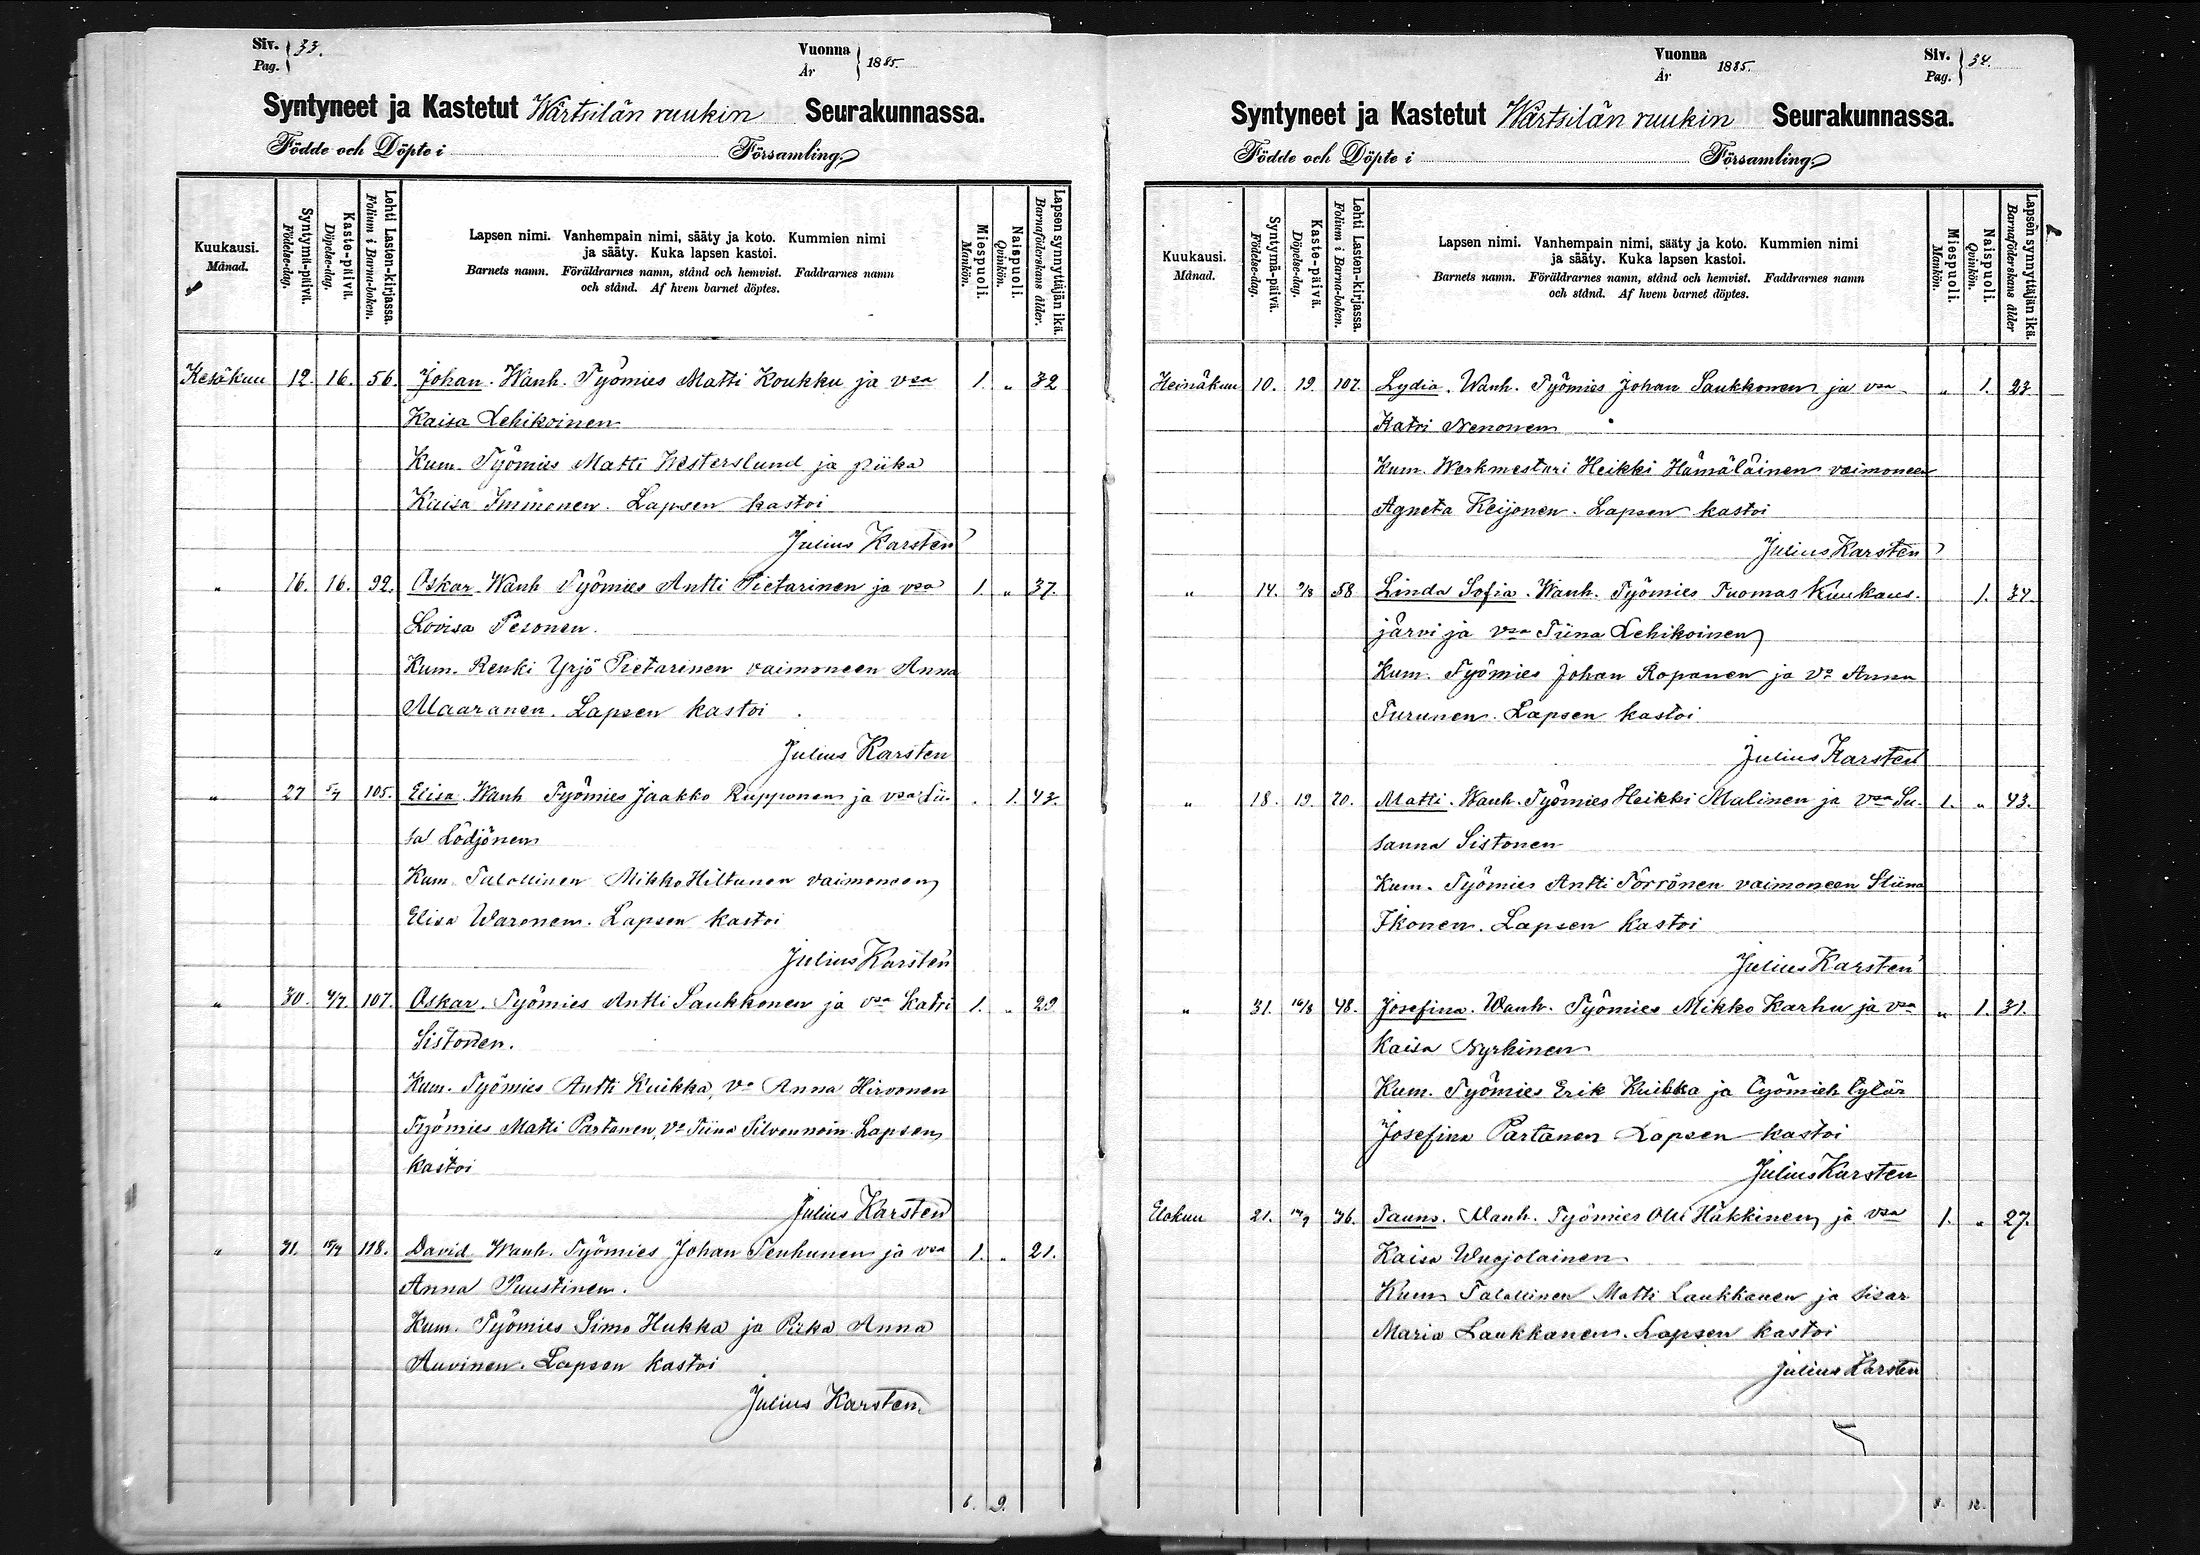 Siv. 33.
Pag.
Vuonna 1885.
År
Syntyneet ja Kastetut Wärtsilän ruukin Seurakunnassa.
Födde och Döpte i Församling.
Kuukausi.
Månad.
Syntymä-päivä.
Födelse-dag.
Kaste-päivä.
Döpelse-dag.
Lehti Lasten-kirjassa.
Folium i Barna-boken.
Lapsen nimi. Vanhempain nimi, sääty ja koto. Kummien nimi
ja sääty. Kuka lapsen kastoi.
Barnets namn. Föräldrarnes namn, stånd och hemvist. Faddrarnes namn
och stånd. Af hvem barnet döptes.
Miespuoli.
Mankön.
Naispuoli.
Qvinkön.
Lapsen synnyttäjän ikä.
Barnaföderskans ålder.
Kesäkuu 12. 16. 56. Johan. Wanh. Työmies Matti Koukku ja vsa 1. " 32
Kaisa Lehikoinen
Kum. Työmies Matti Westerslund ja piika
Kaisa Immonen. Lapsen kastoi
Julius Karsten
" 16. 16. 92. Oskar. Wanh Työmies Antti Pietarinen ja vsa 1. " 37.
Lovisa Pesonen.
Kum. Renki Yrjö Pietarinen vaimoneen Anna
Maaranen. Lapsen kastoi
Julius Karsten
" 27 5/7 105. Elisa. Wanh Työmies Jaakko Rupponen ja vsa Lii- . 1. 43.
sa Lödjönen
Kum. Talollinen Mikko Hiltunen vaimoneen
Elisa Waronen. Lapsen kastoi
Julius Karsten
" 30. 4/7. 107. Oskar. Työmies Antti Saukkonen ja vsa Katri 1. " 29
Sistonen.
Kum. Työmies Antti Kuikka, vo Anna Hirvonen
Työmies Matti Partanen, vo Tiina Silvennoin. Lapsen
kastoi
Julius Karsten
" 31. 15/7 118. David Wanh. Työmies Johan Tenhunen ja vsa 1. " 21.
Anna Puustinen.
Kum. Työmies Simo Hukka ja Piika Anna
Auvinen. Lapsen kastoi
Julius Karsten.
6. 9.
Vuonna 1885.
År
Siv. 34.
Pag.
Syntyneet ja Kastetut Wärtsilän ruukin Seurakunnassa.
Födde och Döpte i Församling.
Kuukausi.
Månad.
Syntymä-päivä.
Födelse-dag.
Kaste-päivä.
Döpelse-dag.
Lehti Lasten-kirjassa.
Folium i Barna-boken.
Lapsen nimi. Vanhempain nimi, sääty ja koto. Kummien nimi
ja sääty. Kuka lapsen kastoi.
Barnets namn. Föräldrarnes namn, stånd och hemvist. Faddrarnes namn
och stånd. Af hvem barnet döptes.
Miespuoli.
Mankön.
Naispuoli.
Qvinkön.
Lapsen synnyttäjän ikä.
Barnaföderskans ålder
Heinäkuu 10. 19. 107. Lydia. Wanh. Työmies Johan Saukkonen ja vsa " 1. 23
Katri Nenonen
Kum. Werkmestari Heikki Hämäläinen vaimoneen
Agneta Keijonen. Lapsen kastoi
Julius Karsten
" 14. 9/8 58 Linda Sofia. Wanh. Työmies Tuomas Kuukaus- 1. 34.
järvi ja vsa Tiina Lehikoinen
Kum. Työmies Johan Roponen ja vo Anna
Turunen. Lapsen kastoi
Julius Karsten
" 18. 19. 70. Matti. Wanh. Työmies Heikki Malinen ja vsa Su- 1. " 43.
sanna Sistonen
Kum. Työmies Antti Törrönen vaimoneen Stiina
Ikonen. Lapsen kastoi
Julius Karsten
" 31. 16/8 48. Josefina. Wanh. Työmies Mikko Karhu ja vsa " 1. 31.
Kaisa Nyrhinen
Kum. Työmies Erik Kuikka ja Työmieh tytär
Josefina Partanen Lapsen kastoi
Julius Karsten
Elokuu 21. 36. Tauno. Wanh. Työmies Olli Häkkinen ja vsa 1. " 27.
Kaisa Wuojolainen
Kum. Talollinen Matti Laukkanen ja sisar
Maria Laukkanen. Lapsen kastoi
Julius Karsten
8. 12.